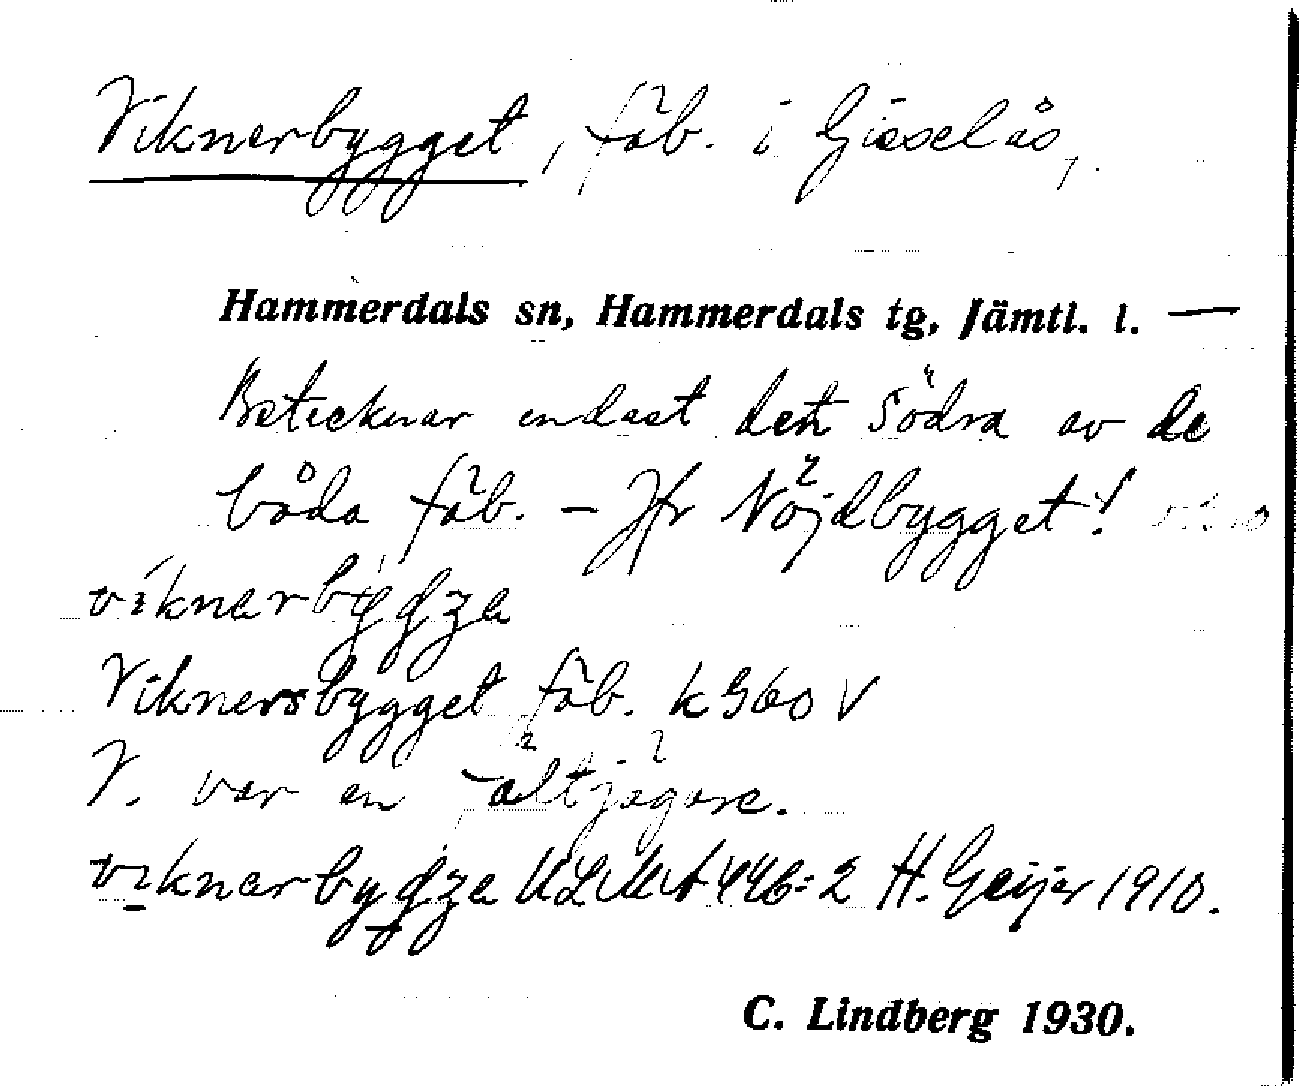 Viknerbygget, fäb. i Gisselås,
Hammerdals sn, Hammerdals tg, Jämtl. l. —
Betecknar endast den södra av de
båda fäb. – Jfr Nöjdbygget!
viknarbygʒa
Viknersbygget fäb. k 360 V
V. var en ältjägare.
viknarbygʒa ULMA 446:2 H. Geijer 1910.
C. Lindberg 1930.